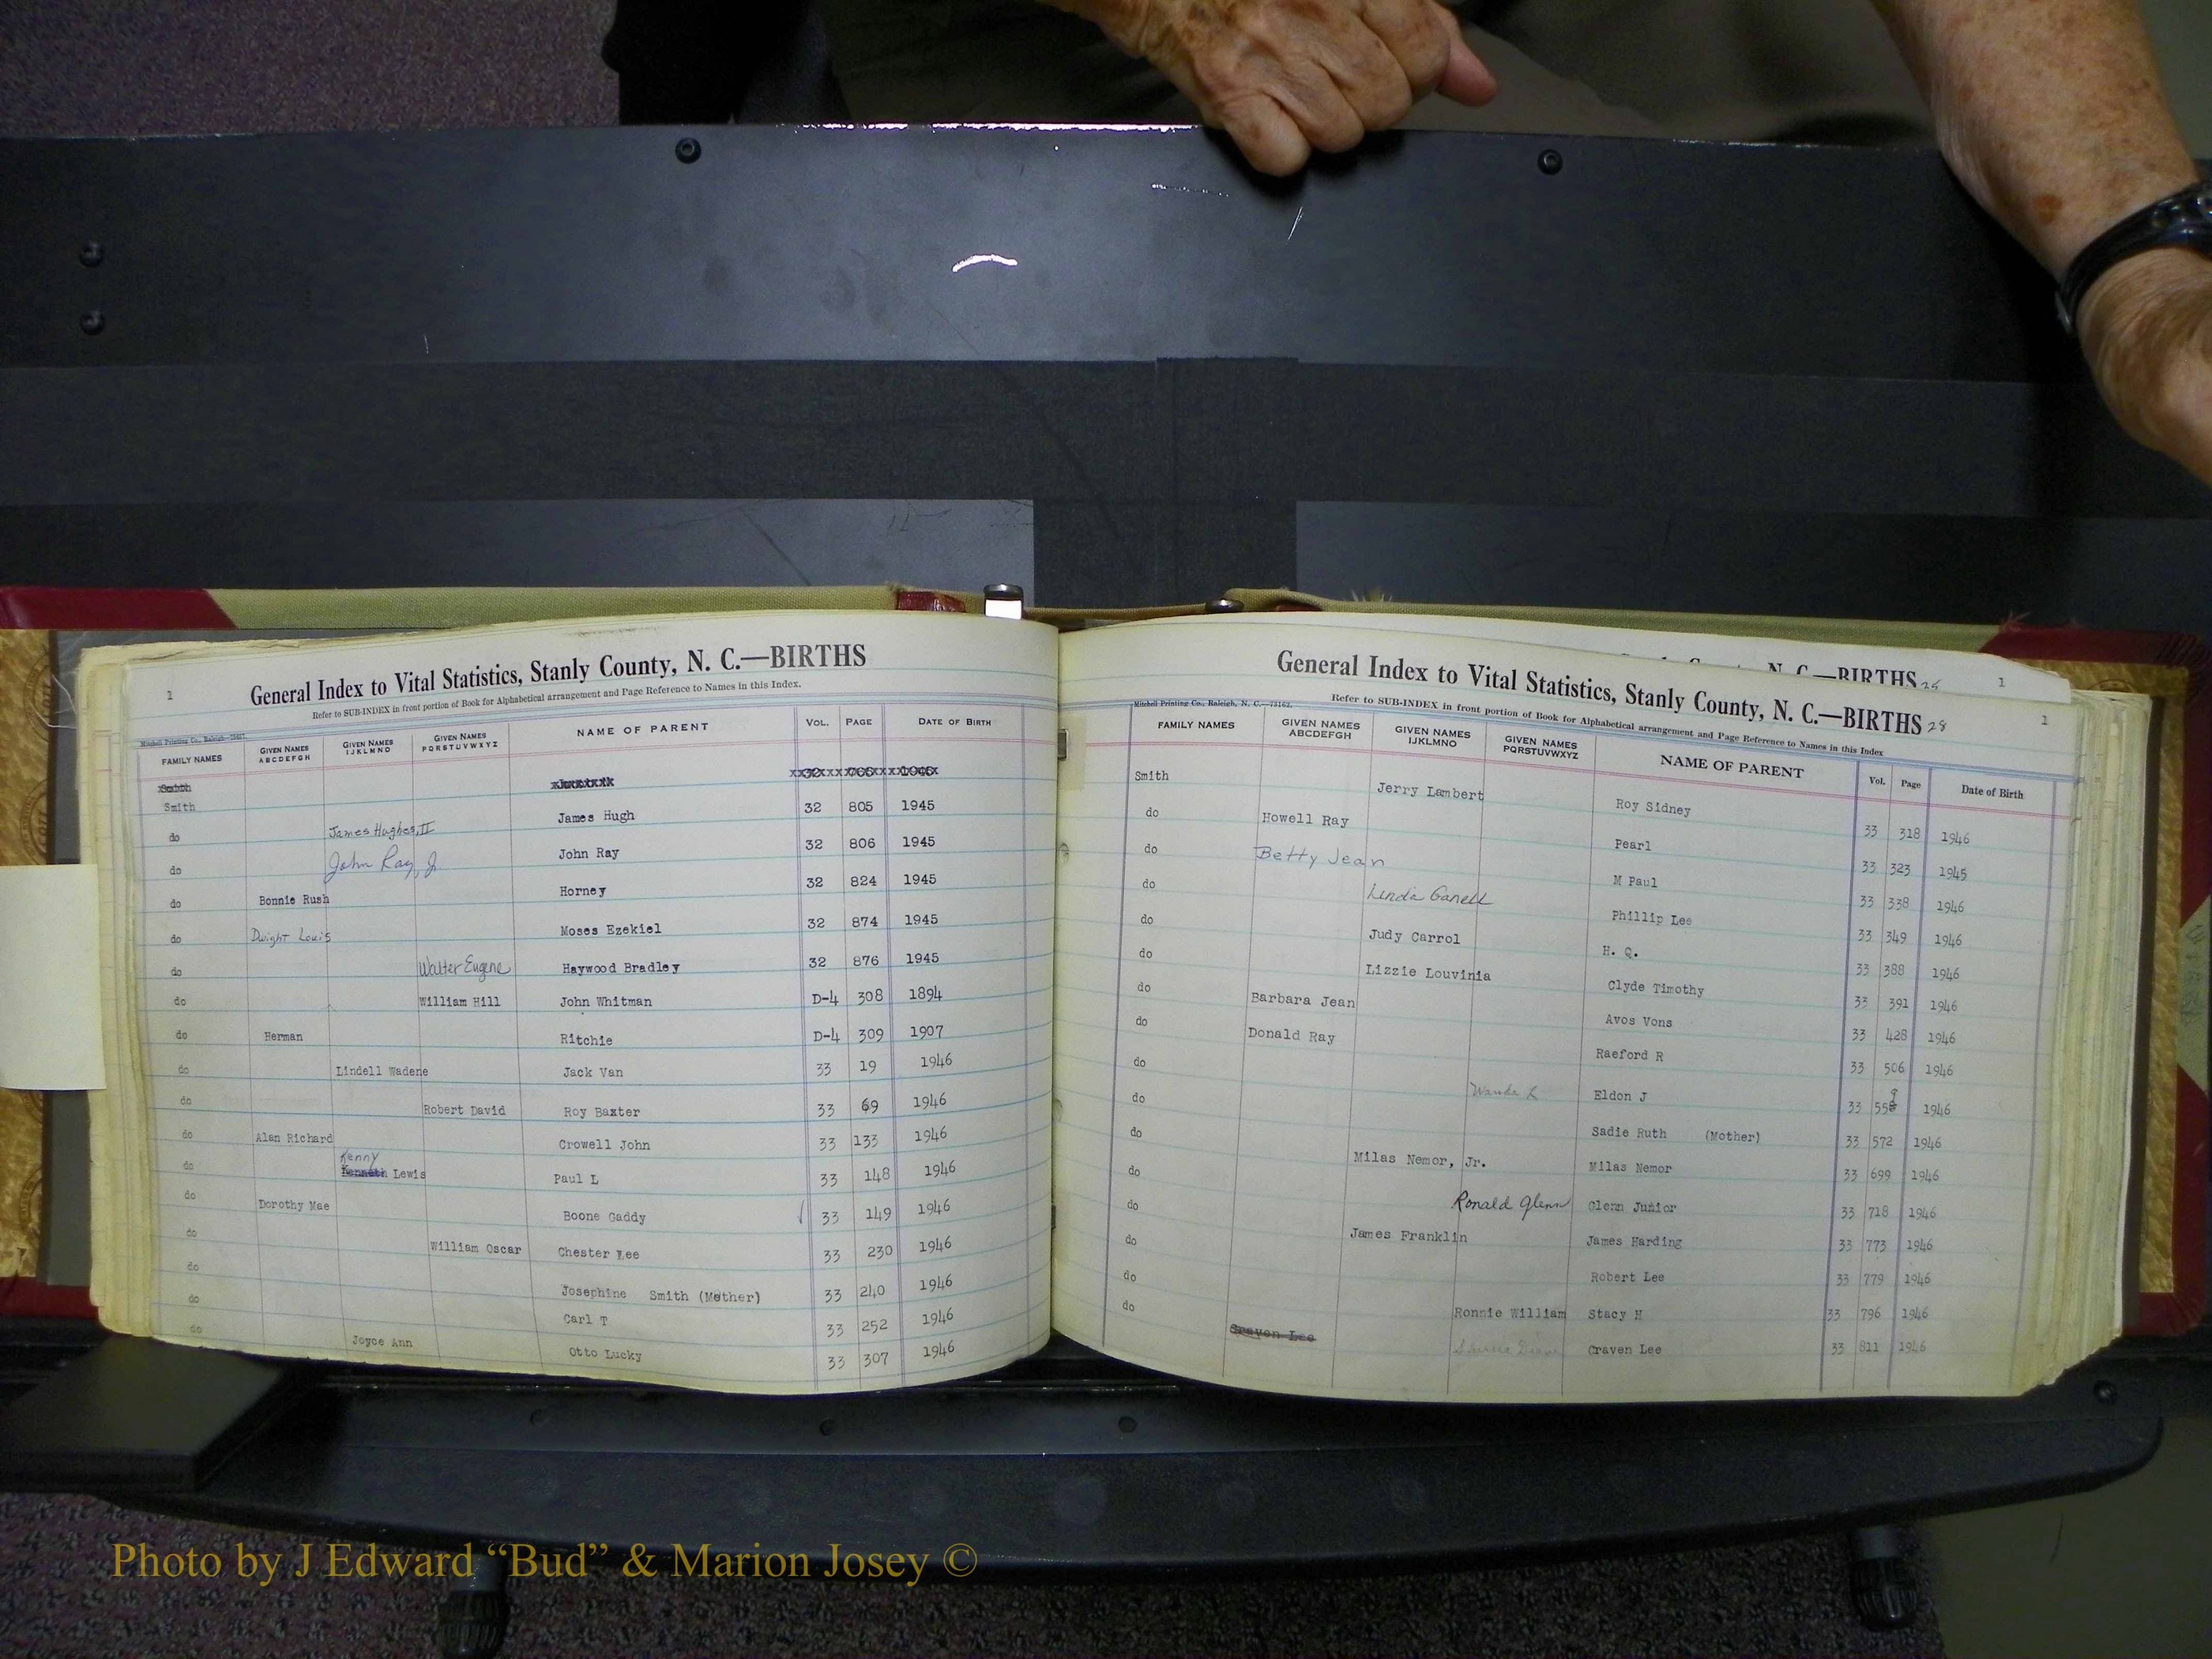 General Index to Vital Statistics, Stanly County, N. C.—BIRTHS
1
Refer to SUB-INDEX in front portion of Book for Alphabetical arrangement and Page Reference to Names in this Index.
Mitchell Printing Co., Raleigh
FAMILY NAMES GIVEN NAMES ABCDEFGH GIVEN NAMES IJKLMNO GIVEN NAMES PQRSTUVWXYZ NAME OF PARENT VOL. PAGE DATE OF BIRTH
Smith
Smith James Hughes, II James Hugh 32 805 1945
do John Ray, Jr John Ray 32 806 1945
do Bonnie Rush Horney 32 824 1945
do Dwight Louis Moses Ezekiel 32 874 1945
do Walter Eugene Haywood Bradley 32 876 1945
do William Hill John Whitman D-4 308 1894
do Herman Ritchie D-4 309 1907
do Lindell Wadene Jack Van 33 19 1946
do Robert David Roy Baxter 33 69 1946
do Alan Richard Crowell John 33 133 1946
do Kenny Kenneth Lewis Paul L 33 148 1946
do Dorothy Mae Boone Gaddy 33 149 1946
do William Oscar Chester Lee 33 230 1946
do Josephine Smith (Mother) 33 240 1946
do Carl T 33 252 1946
do Joyce Ann Otto Lucky 33 307 1946
N. C.—BIRTHS
1
General Index to Vital Statistics, Stanly County, N. C.—BIRTHS 28
1
Mitchell Printing Co., Raleigh, N. C.—73162.
Refer to SUB-INDEX in front portion of Book for Alphabetical arrangement and Page Reference to Names in this Index
FAMILY NAMES GIVEN NAMES ABCDEFGH GIVEN NAMES IJKLMNO GIVEN NAMES PQRSTUVWXYZ NAME OF PARENT Vol. Page Date of Birth
Smith Jerry Lambert Roy Sidney 33 318 1946
do Howell Ray Pearl 33 323 1945
do Betty Jean M Paul 33 338 1946
do Linda Ganell Phillip Lee 33 349 1946
do Judy Carrol H. Q. 33 388 1946
do Lizzie Louvinia Clyde Timothy 33 391 1946
do Barbara Jean Avos Vons 33 428 1946
do Donald Ray Raeford R 33 506 1946
do Wanda L Eldon J 33 559 1946
do Sadie Ruth (Mother) 33 572 1946
do Milas Nemor, Jr. Milas Nemor 33 699 1946
do Ronald Glenn Glenn Junior 33 718 1946
do James Franklin James Harding 33 773 1946
do Robert Lee 33 779 1946
do Ronnie William Stacy H 33 796 1946
do Craven Lee Craven Lee 33 811 1946
Photo by J Edward “Bud” & Marion Josey ©